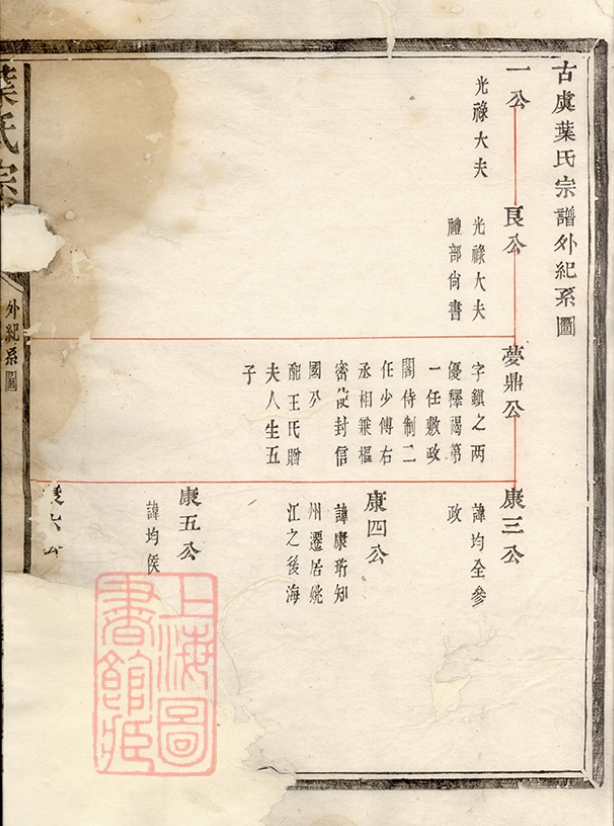 古虞葉氏宗譜外紀系圖
一公
光祿大夫
良公
光祿大夫
禮部尙書
夢鼎公
字鎮之两
優釋褐第
一任敷政
閣侍制二
任少傅右
丞相兼樞
密使封信
國公
配王氏贈
夫人生五
子
康三公
諱均全參
政
康四公
諱康珩知
州遷居姚
江之後海
康五公
諱均俟
葉氏宗
外紀系圖
上海圖
書館藏